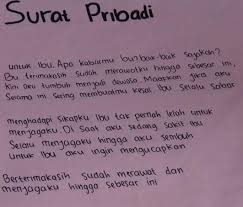 Surat Pribadi
untuk Ibu. Apa kabarmu Ibu? baik-baik sajakah?
Bu terimakasih sudah merawatku hingga sebesar ini,
Kini aku tumbuh menjadi dewasa. Maafkan jika aku
Selama ini sering membuatmu kesal Ibu selalu Sabar
menghadapi Sikapku Ibu tak pernah lelah untuk
menjagaku. Di Saat aku sedang sakit Ibu
Selalu menjagaku hingga aku sembuh
Untuk Ibu aku ingin mengucapkan
Berterimakasih Sudah merawat dan
menjagaku hingga sebesar ini